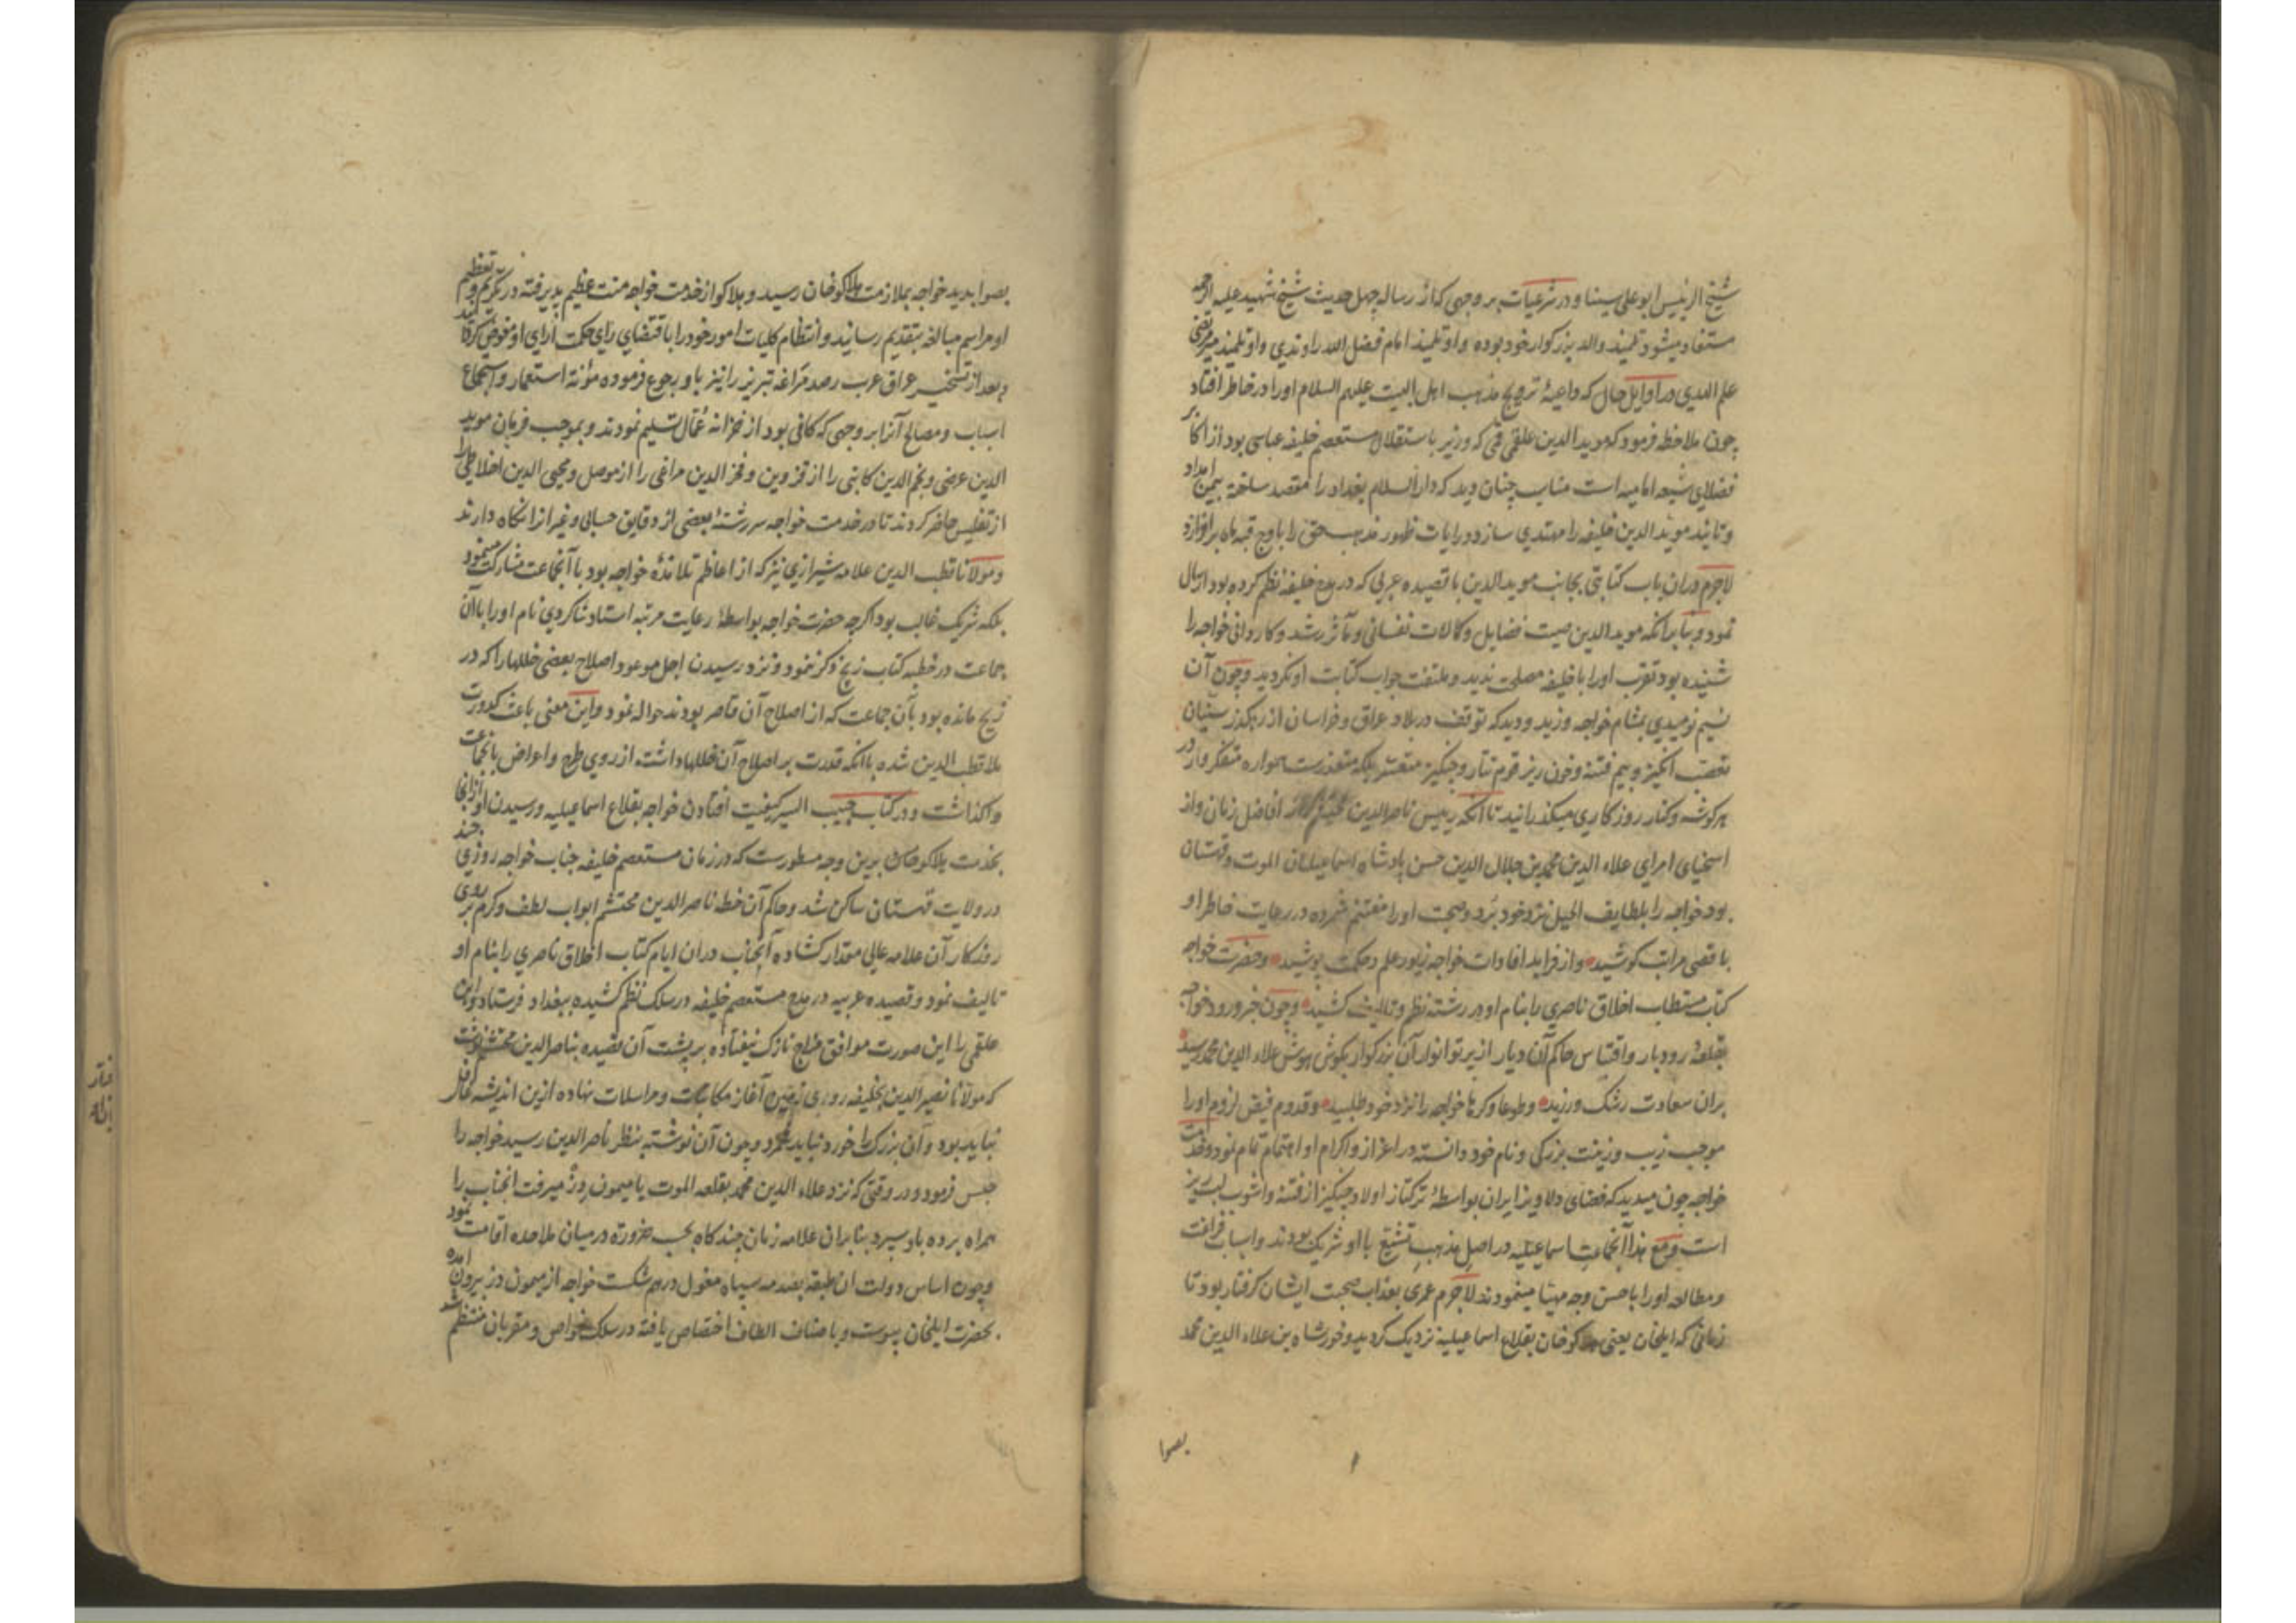 شیخ الرئیس ابوعلی سینا و در شرعیات بر وجهی که از رساله چهل حدیث شیخ شهید علیه الرحمه
مستفاد میشود تلمیذ والد بزرکوار خود بوده و او تلمیذ امام فضل الله راوندی و او تلمیذ میر مرتضی
علم الهدی در اوایل حال که داعیهٔ ترویج مذهب اهل البیت علیهم السلام او را در خاطر افتاد
چون ملاحظه فرمود که موید الدین علقمی قمی که وزیر باستقلال مستعصم خلیفه عباسی بود از اکابر
فضلای شیعه امامیه است مناسب چنان دید که دار السلام بغداد را مقصد ساخته بیمن امداد
و تائید موید الدین خلیفه را مهتدی سازد و رایات ظهور مذهب حق را باوج قبه ماه برافرازد
لاجرم دران باب کتابتی بجانب موید الدین با قصیده عربی که در مدح خلیفه نظم کرده بود ارسال
نمود و بنا برانکه موید الدین صیت فضایل و کمالات نفسانی و مآثر رشد و کاردانی خواجه را
شنیده بود تقرب او را با خلیفه مصلحت ندید و ملتفت جواب کتابت او نکردید و چون آن
نسیم نومیدی بمشام خواجه وزید و دید که توقف در بلاد عراق و خراسان از رهکذر سنیان
تعصب انکیز و بیم فتنهٔ خون ریز قوم تتار و چنکیز متعسر بلکه متعذرست همواره متفکروار در
هر کوشه و کنار روزکاری میکذرانید تا آنکه رییس ناصر الدین محتشم که از افاضل زمان و از
اسخیای امرای علاء الدین محمد بن جلال الدین حسن پادشاه اسماعیلیان الموت و قهستان
بود خواجه را بلطایف الحیل نزد خود برد و صحبت او را مغتنم شمرده در رعایت خاطر او
باقصی مراتب کوشید و از فراید افادات خواجه زیور علم و حکمت پوشید و حضرت خواجه
کتاب مستطاب اخلاق ناصری را بنام او در رشته نظم و تالیف کشید و چون خبر ورود خواجه
بقلعهٔ رودبار و اقتباس حاکم آن دیار از پرتو انوار آن بزرکوار بکوش هوش علاء الدین محمد رسید
بران سعادت رشک ورزید و طوعا و کرها خواجه را نزد خود طلبید و قدوم فیض لزوم او را
موجب زیب و زینت بزرکی و نام خود دانسته در اعزاز و اکرام او اهتمام تمام نمود و خدمت
خواجه چون میدید که فضای دلاویز ایران بواسطهٔ ترکتاز اولاد چنکیز از فتنه و آشوب لبریز
است و مع هذا آنجماعت اسماعیلیه در اصل مذهب تشیع با او شریک بودند و اسباب فراغت
و مطالعه او را باحسن وجه مهیا مینمودند لاجرم عمری بعذاب صحبت ایشان کرفتار بود تا
زمانی که ایلخان یعنی هلاکو خان بقلاع اسماعیلیه نزدیک کردید و خورشاه بن علاء الدین محمد
بصوا
بصوابدید خواجه بملازمت هلاکو خان رسید و هلاکو از خدمت خواجه منت عظیم پذیرفته در تکریم و تعظیم
او مراسم مبالغه بتقدیم رسانید و انتظام کلیات امور خود را باقتضای رای حکمت آرای او مفوض کردانید
و بعد از تسخیر عراق عرب رصد مراغه تبریز را نیز باو رجوع فرموده مؤنه استعمار و استجماع
اسباب و مصالح آنرا بر وجهی که کافی بود از خزانه عمال تسلیم نمودند و بموجب فرمان موید
الدین عرضی و نجم الدین کاتبی را از قزوین و فخر الدین مراغی را از موصل و محیی الدین اخلاطی را
از تفلیس حاضر کردند تا در خدمت خواجه سررشتهٔ بعضی از دقایق حسابی و غیر از انکاه دارند
و مولانا قطب الدین علامه شیرازی نیز که از اعاظم تلامذهٔ خواجه بود با آنجماعت مشارکت مینمود
بلکه شریک غالب بود اکرچه حضرت خواجه بواسطهٔ رعایت مرتبه استاد شاکردی نام او را باآن
جماعت در خطبه کتاب زیج ذکر ننمود و نزد رسیدن اجل موعود اصلاح بعضی خللها را که در
زیج مانده بود بآن جماعت که از اصلاح آن قاصر بودند حواله نمود و این معنی باعث کدورت
ملا قطب الدین شده باآنکه قدرت بر اصلاح آن خللها داشت از روی طرح و اعراض بآنجماعت
واکذاشت و در کتاب حبیب السیر کیفیت افتادن خواجه بقلاع اسماعیلیه و رسیدن او از آنجا
بخدمت هلاکو خان بدین وجه مسطورست که در زمان مستعصم خلیفه جناب خواجه روزی چند
در ولایت قهستان ساکن شد و حاکم آن خطه ناصر الدین محتشم ابواب لطف و کرم بر روی
روزکار آن علامه عالی مقدار کشاده آنجناب دران ایام کتاب اخلاق ناصری را بنام او
تالیف نمود و قصیده عربیه در مدح مستعصم خلیفه در سلک نظم کشیده ببغداد فرستاد و ابن
علقمی را این صورت موافق مزاج نازک نیفتاده بر پشت آن قصیده بناصر الدین محتشم نوشت
که مولانا نصیر الدین بخلیفه روی زمین آغاز مکاتبات و مراسلات نهاده ازین اندیشه غافل
نباید بود و آن بزرک را خورد نباید شمرد و چون آن نوشته بنظر ناصر الدین رسید خواجه را
حبس فرمود و در وقتی که نزد علاء الدین محمد بقلعه الموت یا میمون دژ میرفت آنجناب را
همراه برده باو سپرد بنابران علامه زمان چند کاه بحسب ضرورة در میان ملاحده اقامت نمود
و چون اساس دولت ان طبقه بصدمه سپاه مغول درهم شکست خواجه از میمون دز بیرون آمده
بحضرت ایلخان پیوست و باصناف الطاف اختصاص یافته در سلک خواص و مقربان منتظم شد